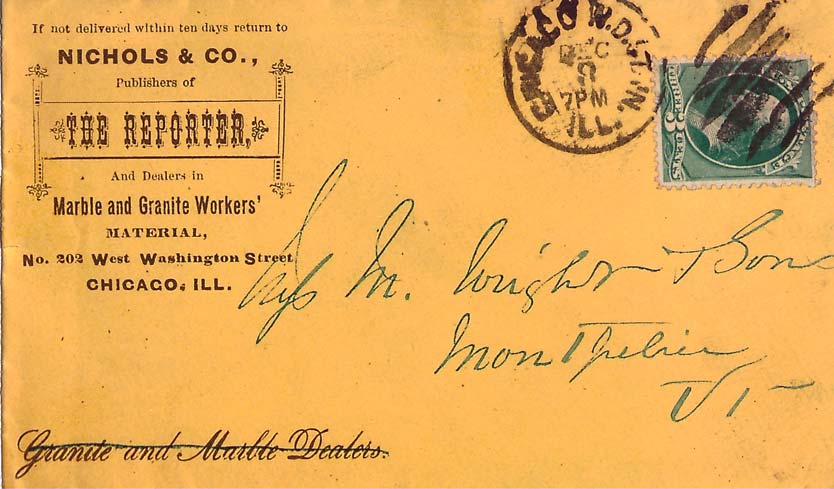 If not delivered within ten days return to
NICHOLS & CO.,
Publishers of
THE REPORTER,
And Dealers in
Marble and Granite Workers'
MATERIAL,
No. 202 West Washington Street
CHICAGO, ILL.
CHICAGO W.D.
DEC
7PM
ILL.
M. Wright & Son
Montpelier
Vt
Granite and Marble Dealers.